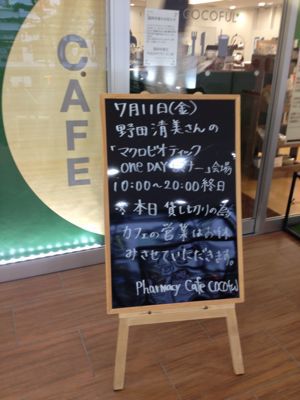 CAFE
COCOFUL
7月11日(金)
野田清美さんの
「マクロビオティック
one DAY セミナー」会場
10:00〜20:00 終日
※本日貸し切りの為
カフェの営業はお休
みさせていただきます。
Pharmacy Cafe COCOFUL